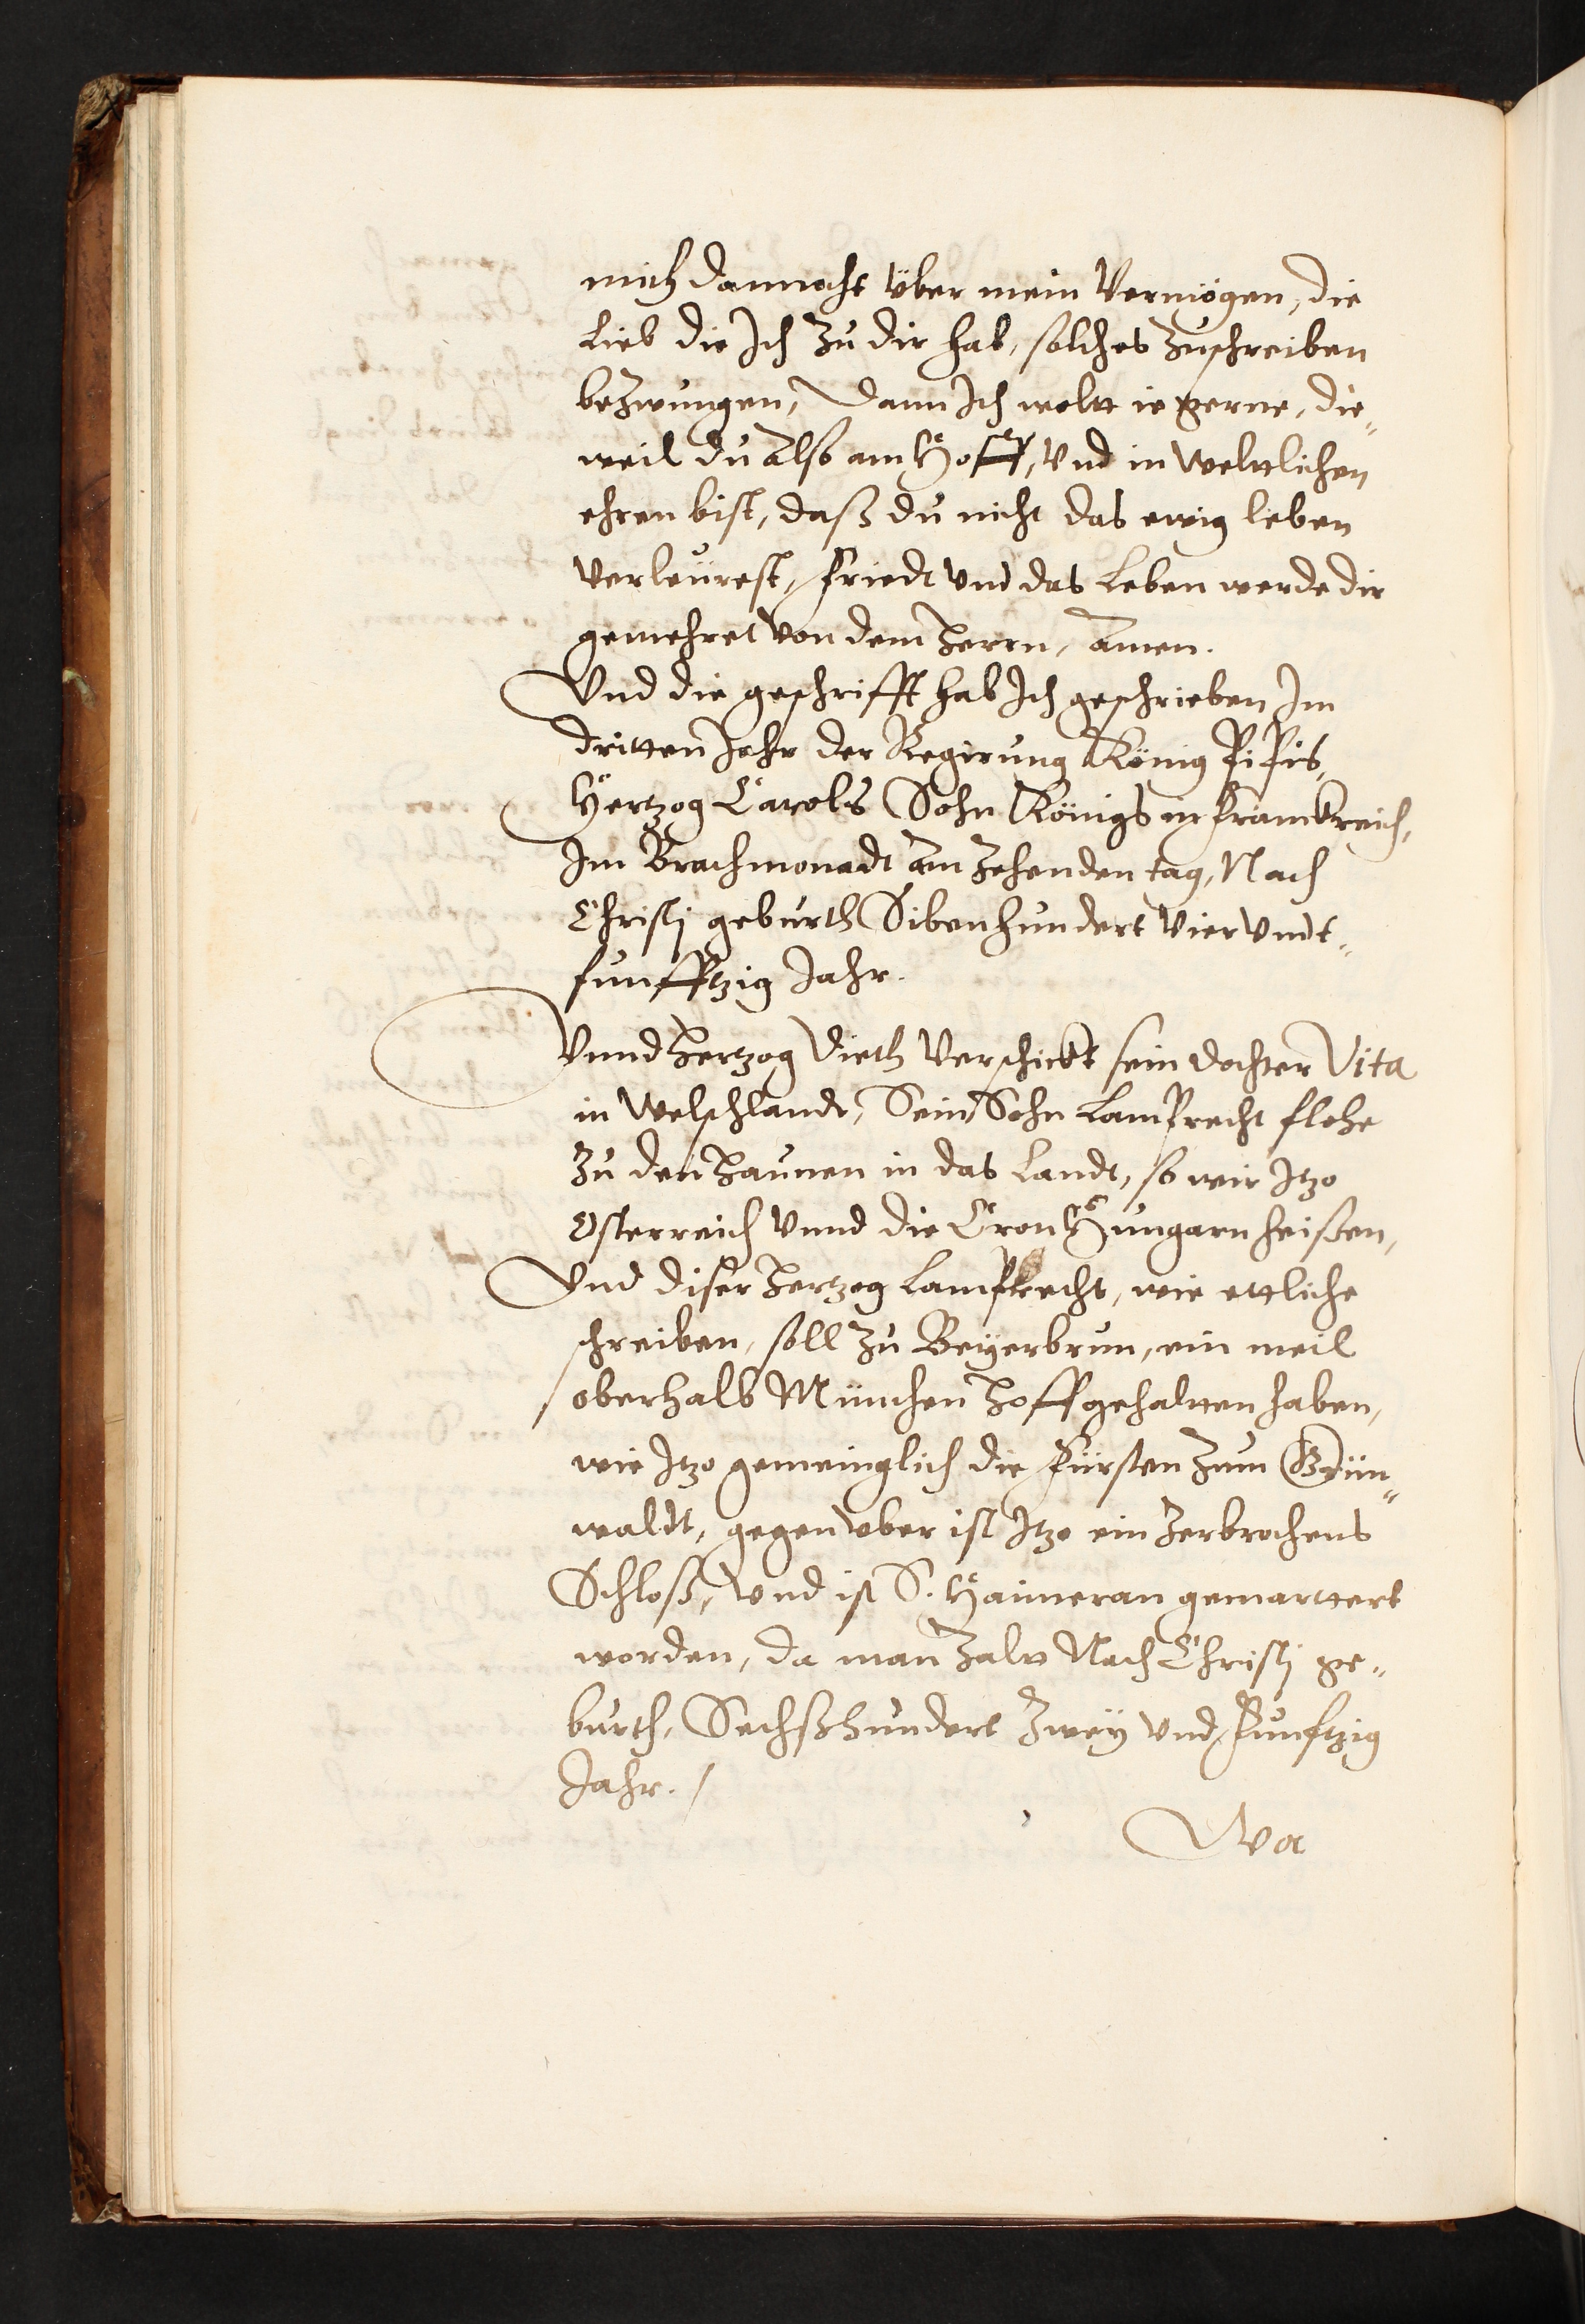 mich dannocht über mein Vermögen, die
Lieb die Ich zu dir hab, solches zuschreiben
bezwungen, Dann Ich woltt ie gerne, die„
weil du Also am Hoff, vnd in welttlichen
ehren bist, daß du nicht das ewig leben
verleürest, Friedt vnd das Leben werde dir
gemehret von dem Herrn, Amen.
Vnd die geschrifft hab Ich geschrieben Im
dritten Jahr der Regirung König Pipis,
Hertzog Carols Sohn Königs in Franckreich,
Im Brachmonadt Am zehenden tag, Nach
Christj geburth Sibenhundert Vier vndt„
funfftzig Jahr.
Vnnd Hertzog Dieth verschickt sein dochter Vita
in Welschlandt, Sein Sohn Lamprecht flohe
zu den Haunen in das Landt, so wir Itzo
Osterreich vnnd die Cron Hungarn heißen,
Vnd diser Hertzog Lamprecht, wie ettliche
schreiben, soll zu Beyerbrun, ein meil
oberhalb München Hoff gehaltten haben,
wie Itzo gemeinglich die Fürsten zum Grün„
waldt, gegen vber ist Itzo ein zerbrochens
Schloß, vnd ist S. Haimeran gemarttert
worden, da man zalt Nach Christj ge„
burth, Sechßhundert Zwey vnd Funftzig
Jahr. /
Wa